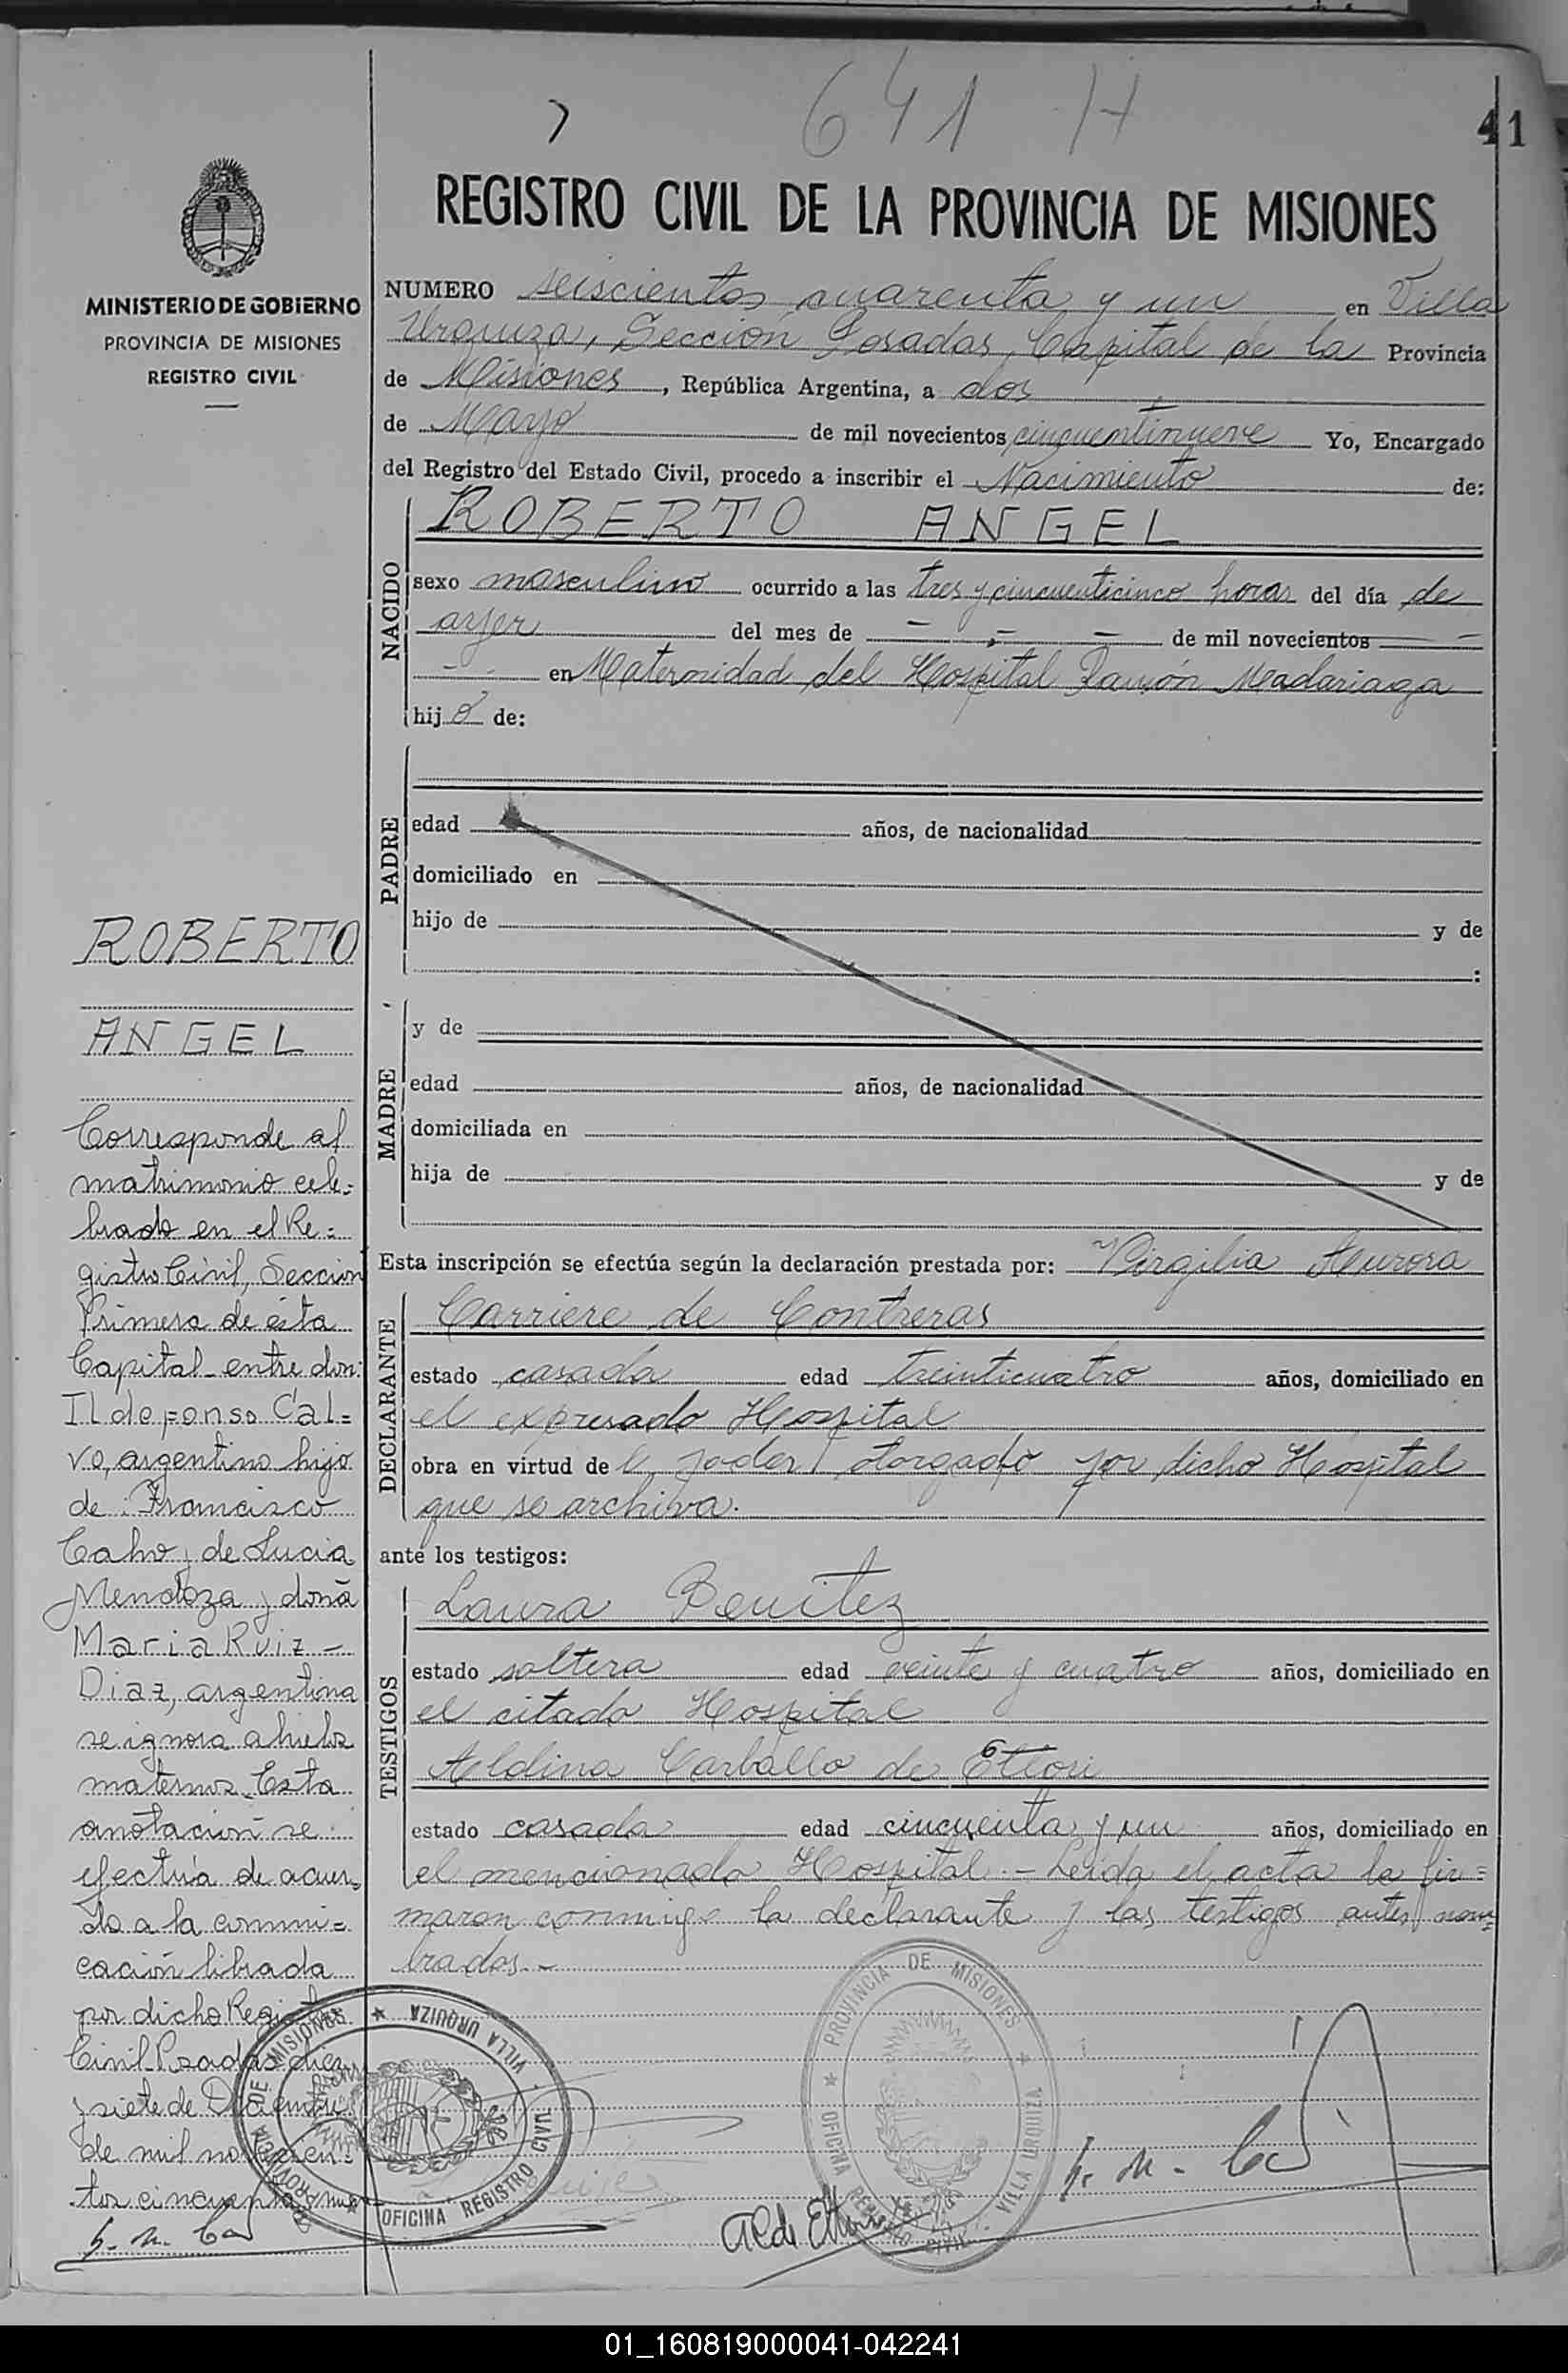 641 H
41
REGISTRO CIVIL DE LA PROVINCIA DE MISIONES
MINISTERIO DE GOBIERNO
PROVINCIA DE MISIONES
REGISTRO CIVIL
NUMERO seiscientos cuarenta y un en Villa
Urquiza, Sección Posadas, Capital de la Provincia
de Misiones, República Argentina, a dos
de Mayo de mil novecientos cincuentinueve Yo, Encargado
del Registro del Estado Civil, procedo a inscribir el Nacimiento de:
NACIDO
ROBERTO ANGEL
sexo masculino ocurrido a las tres y cincuenticinco horas del día de
ayer del mes de - - - de mil novecientos - -
- - en Maternidad del Hospital Ramón Madariaga
hijo de:
PADRE
edad años, de nacionalidad
domiciliado en
hijo de y de
:
MADRE
y de
edad años, de nacionalidad
domiciliada en
hija de y de
Esta inscripción se efectúa según la declaración prestada por: Virgilia Aurora
DECLARANTE
Carriere de Contreras
estado casada edad treinticuatro años, domiciliado en
el expresado Hospital
obra en virtud de l poder otorgado por dicho Hospital
que se archiva.
ante los testigos:
TESTIGOS
Laura Benitez
estado soltera edad veinte y cuatro años, domiciliado en
el citado Hospital
Aldina Carballo de Ettori
estado casada edad cincuenta y un años, domiciliado en
el mencionado Hospital.- Leída el acta la fir=
maron conmigo la declarante y las testigos antes nom=
brados.-
ROBERTO
ANGEL
Corresponde al
matrimonio cele=
brado en el Re=
gistro Civil, Sección
Primera de ésta
Capital entre don:
Ildefonso Cal=
vo, argentino hijo
de Francisco
Calvo y de Lucia
Mendoza y doña
Maria Ruiz -
Diaz, argentina
se ignora abuelos
maternos. Esta
anotación se
efectúa de acuer=
do a la comuni=
cación librada
por dicho Registro
Civil. Posadas diez
y siete de Diciembre
de mil novecien=
tos cincuenta nueve
PROVINCIA DE MISIONES * VILLA URQUIZA * OFICINA REGISTRO CIVIL
PROVINCIA DE MISIONES * VILLA URQUIZA * OFICINA REGISTRO CIVIL
Al de Ettori
01_160819000041-042241